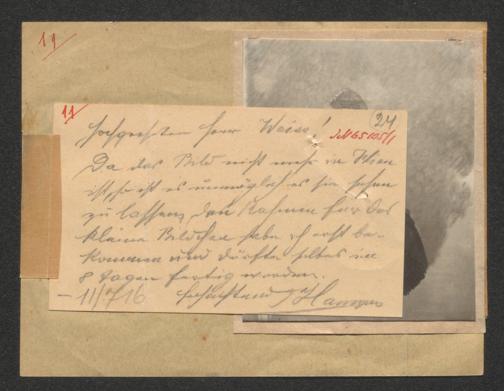 19
11
24
Hochgeehrter Herr Weiss!
JN 65105/1
Da das Bild nicht mehr in Wien
ist, so ist es unmöglich es sie sehen
zu lassen, den Rahmen für das
kleine Bildchen habe ich erst be-
kommen und dürfte selbes in
8 Tagen fertig werden.
– 11/7 16 hochachtend